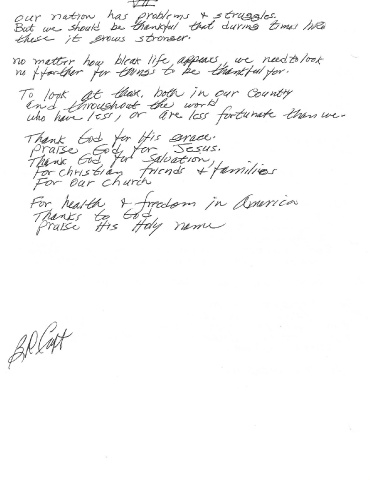 VII
our nation has problems & struggles.
But we should be thankful that during times like
these it grows stronger.
no matter how bleak life appears, we need to look
no further for things to be thankful for.
To look at those, both in our Country
and throughout the world
who have less, or are less fortunate than we.
Thank God for His grace.
Praise God for Jesus.
Thank God for Salvation,
For christian friends & families
For our church
For health & freedom in America
Thanks to God
Praise His Holy name